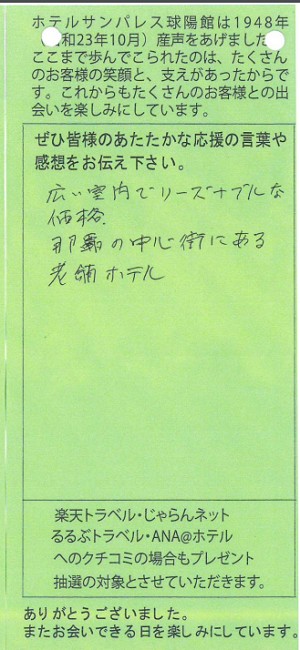 ホテルサンパレス球陽館は1948年
和23年10月）産声をあげました
ここまで歩んでこられたのは、たくさん
のお客様の笑顔と、支えがあったからで
す。これからもたくさんのお客様との出
会いを楽しみにしています。
ぜひ皆様のあたたかな応援の言葉や
感想をお伝え下さい。
広い室内でリーズナブルな
価格
那覇の中心街にある
老舗ホテル
楽天トラベル・じゃらんネット
るるぶトラベル・ANA@ホテル
へのクチコミの場合もプレゼント
抽選の対象とさせていただきます。
ありがとうございました。
またお会いできる日を楽しみにしています。